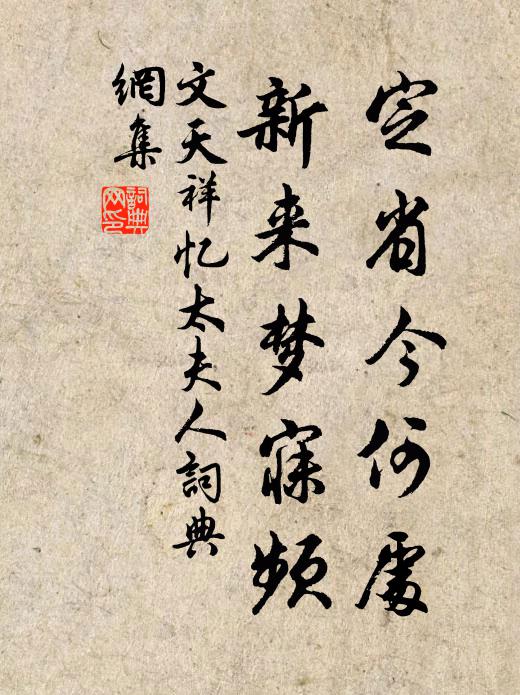 定省今何處
新来梦寐频
文天祥忆太夫人詞典
網集
詞典網印